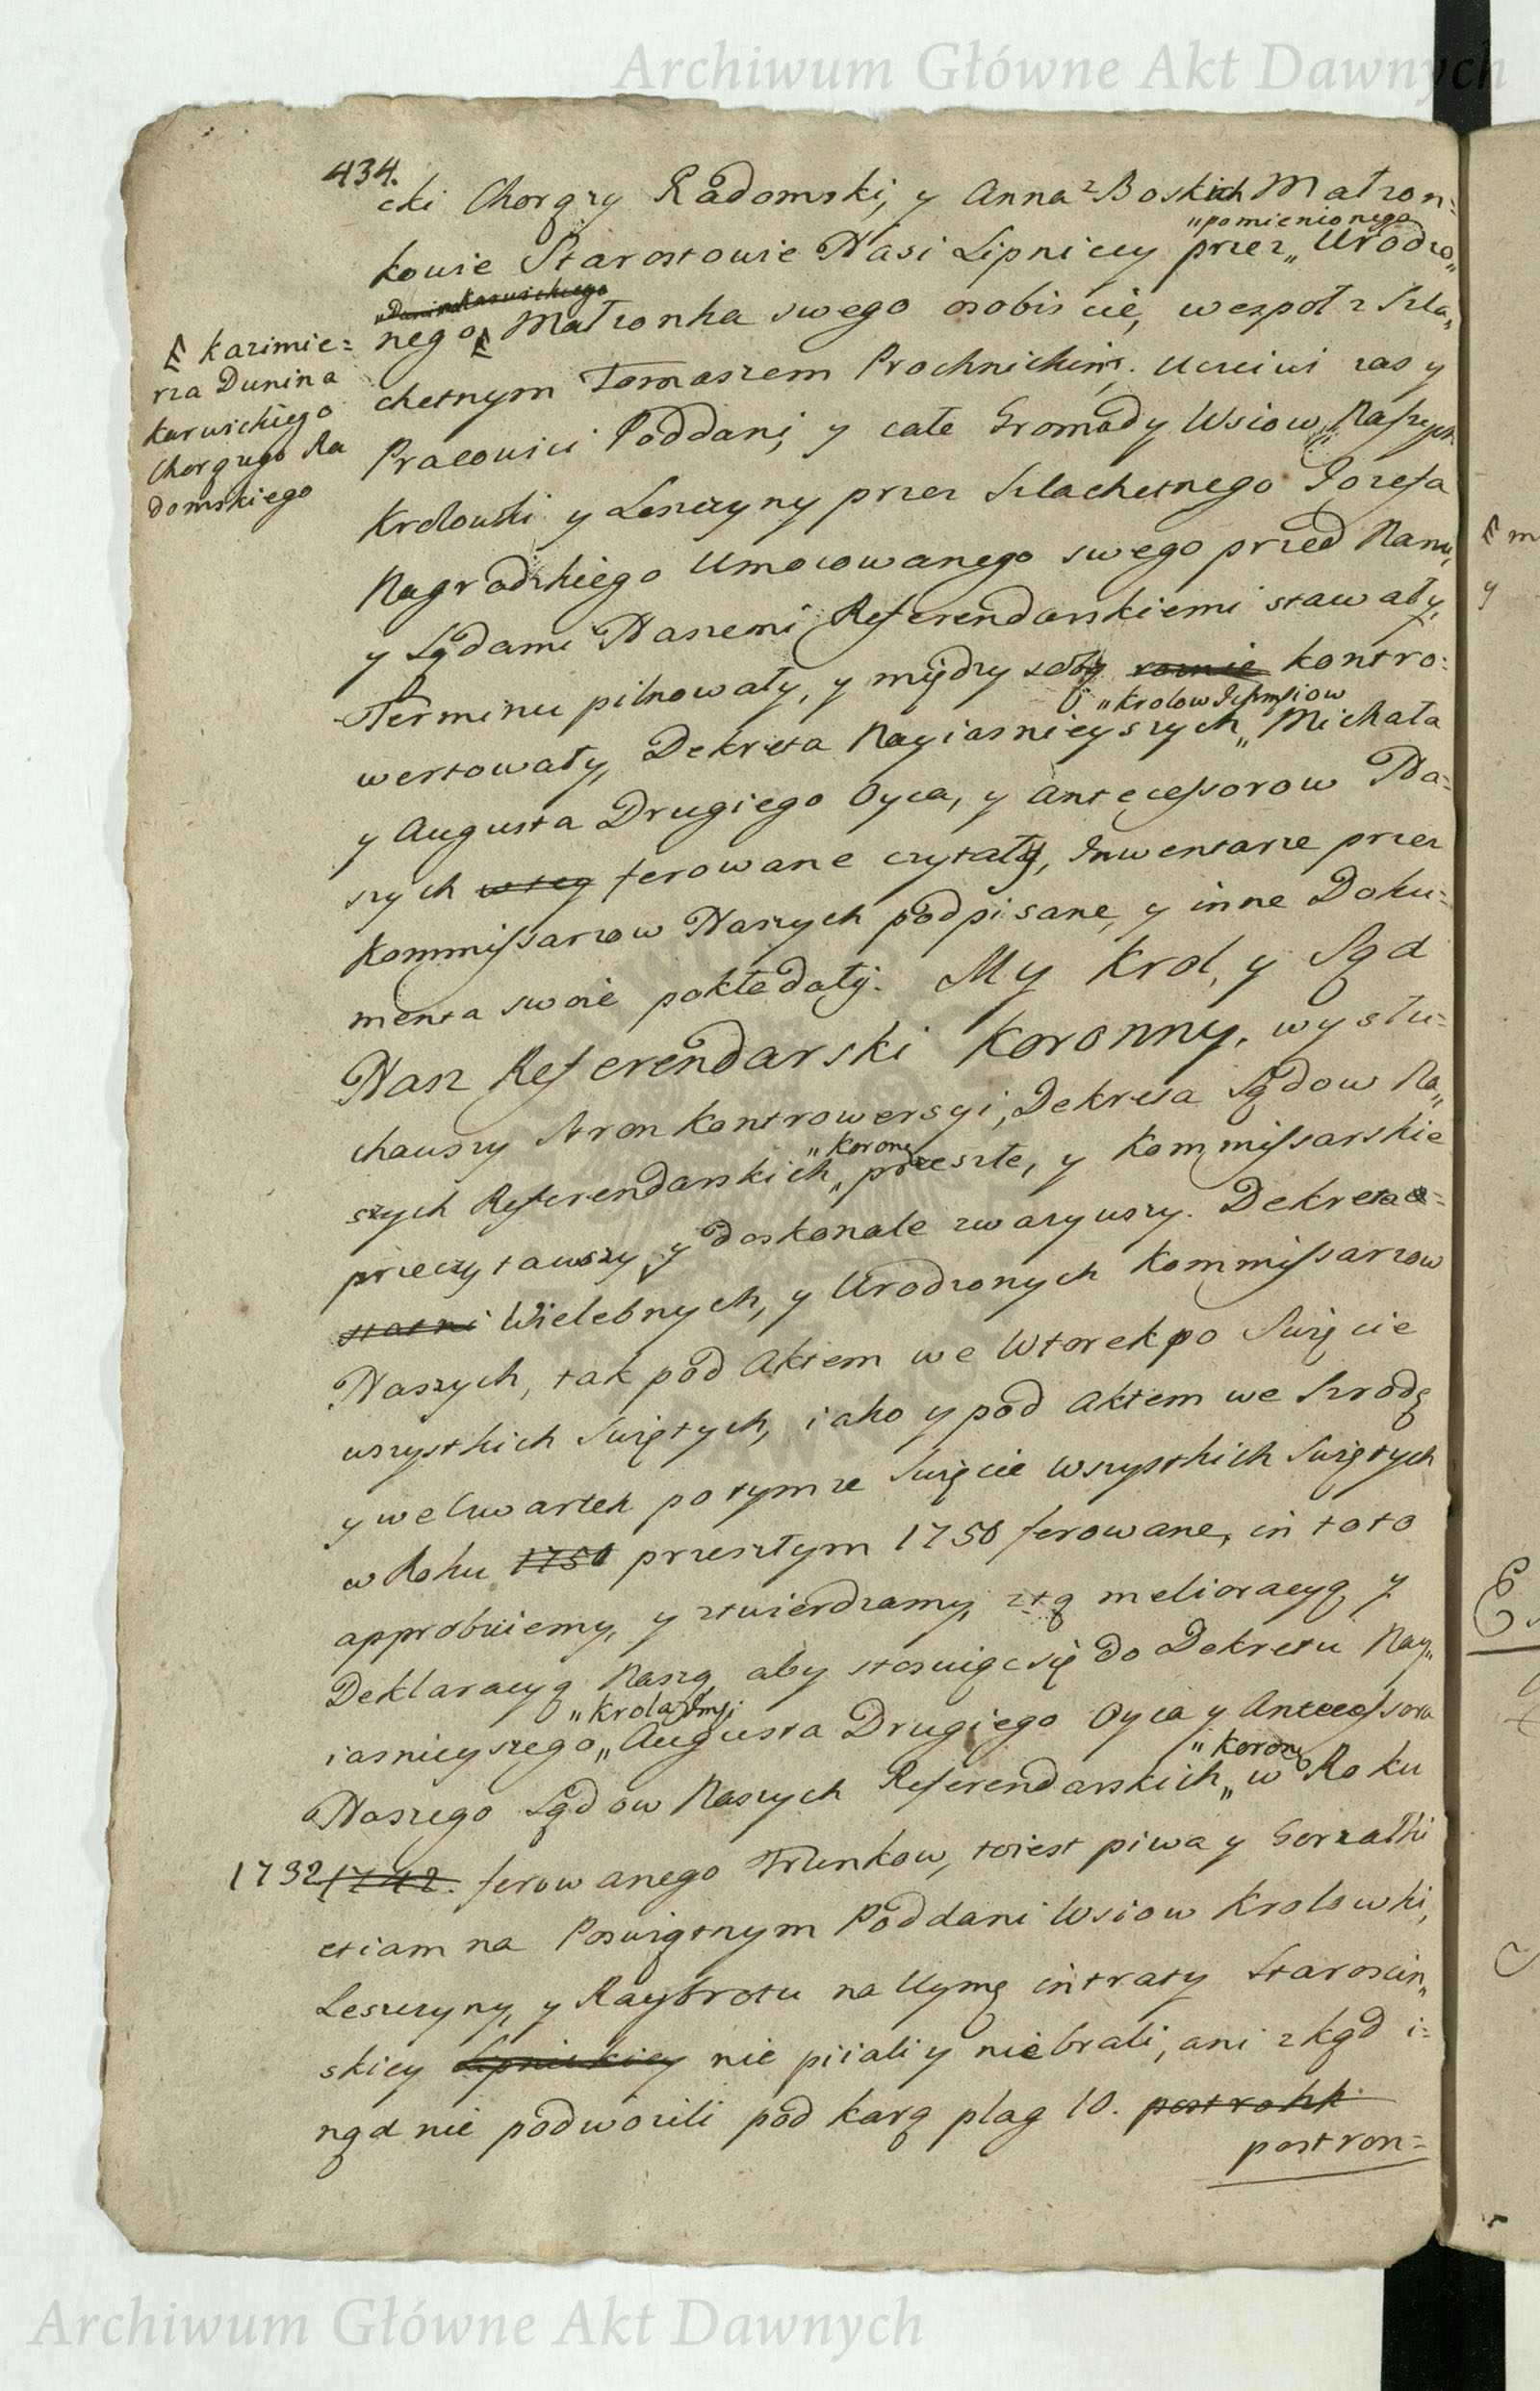 Archiwum Główne Akt Dawnych
434.
cki Chorąży Radomski, y Anna z Boskich Małzon=
„pomienionego
kowie Starostowie Nasi Lipniccy przez „ Urodzo„
„Dunina Karwickiego
nego Małzonka swego osobiscie, wespoł z Szla„
chetnym Tomaszem Prochnickim. Ucciwi zas y
Pracowici Poddani, y całe Gromady Wsiow Naszych
Krolowki y Leszczyny przez Szlachetnego Jozefa
Nagrodzkiego Umocowanego swego przed Nami,
y Sądami Naszemi Referendarskiemi stawały,
Terminu pilnowały, y między sobą roznie kontro=
„Krolow Ichmsiow
wertowały, Dekreta Nayiasnieyszych „ Michała
y Augusta Drugiego Oyca, y Antecessorow Na=
szych w tey ferowane czytały, Inwentarze przez
Kommissarzow Naszych podpisane, y inne Doku=
menta swoie pokładały. My Krol, y Sąd
Nasz Referendarski Koronny, wysłu=
chawszy Stron Kontrowersyi, Dekreta Sądow Na„
„Koron
szych Referendarskich „ przeszłe, y Kommissarskie
przeczytawszy y doskonale zwazywszy. Dekreta
Wielebnych, y Urodzonych Kommissarzow
Naszych, tak pod Aktem we Wtorek po Swięcie
wszystkich Swiętych, iako y pod Aktem we Srodę
y we Czwartek po tymze Swięcie Wszystkich Swiętych
w Roku 1750 przeszłym 1750 ferowane, in toto
approbuiemy, y ztwierdzamy, z tą melioracyą y
Deklaracyą Naszą, aby stosuiąc się do Dekretu Nay„
„Krola Jmsi
iasnieyszego „ Augusta Drugiego Oyca y Antecessora
„Koron
Naszego Sądow Naszych Referendarskich „ w Roku
1732 1742. ferowanego Trunkow, toiest piwa y Gorzałki
etiam na Poswiętnym Poddani Wsiow Krolowki,
Leszczyny, y Raybrotu na Uymę intraty Staroscin„
skiey Lipnickiey nie piiali y nie brali, ani zkąd i=
nąd nie podwozili pod karą plag 10. postronk
postron=
Kazimie=
rza Dunina
Karwickiego
Chorązego Ra
domskiego
m
y
Archiwum Główne Akt Dawnych